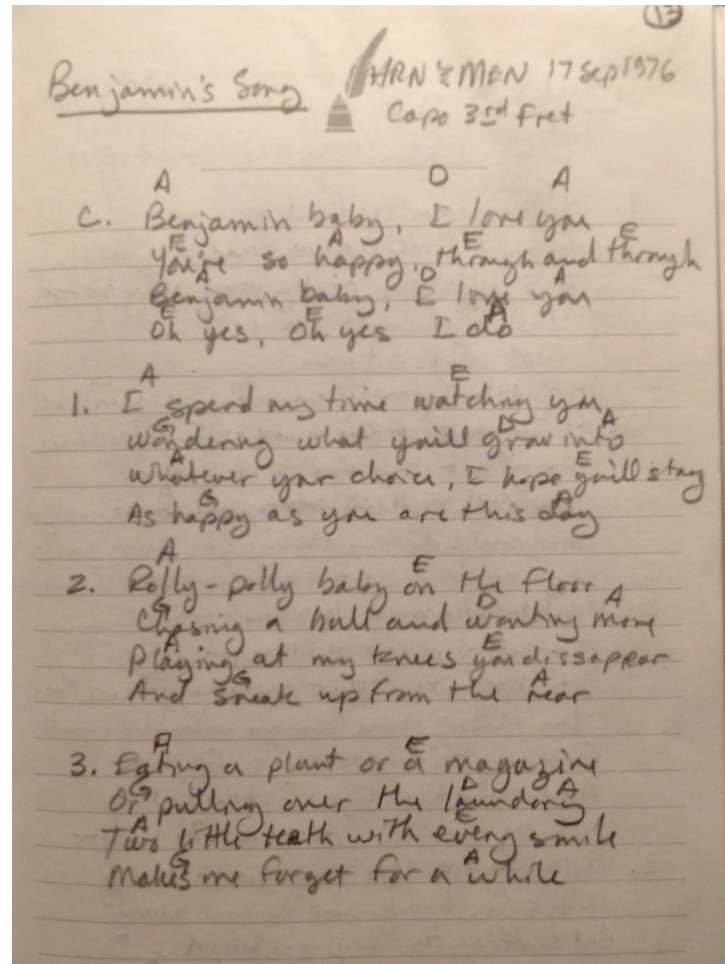 13
Benjamin's Song HRN & MEN 17 Sep 1976
Capo 3rd Fret
A D A
C. Benjamin baby, I love you
E A E E
You're so happy, through and through
A D A
Benjamin baby, I love you
E E A
Oh yes, Oh yes I do
A E
1. I spend my time watching you
G D A
wondering what you'll grow into
A E
whatever your choice, I hope you'll stay
G A
As happy as you are this day
A E
2. Rolly-polly baby on the floor
G D A
Chasing a ball and wanting more
A E
Playing at my knees you dissappear
G A
And sneak up from the rear
A E
3. Eating a plant or a magazine
G D A
Or pulling over the laundery
A E
Two little teath with every smile
G A
Makes me forget for a while